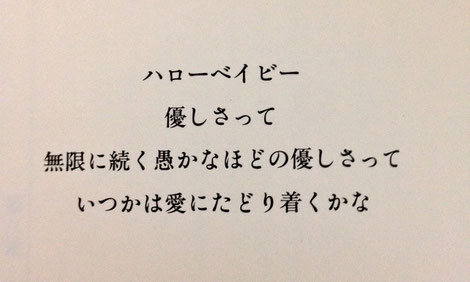 ハローベイビー
優しさって
無限に続く愚かなほどの優しさって
いつかは愛にたどり着くかな